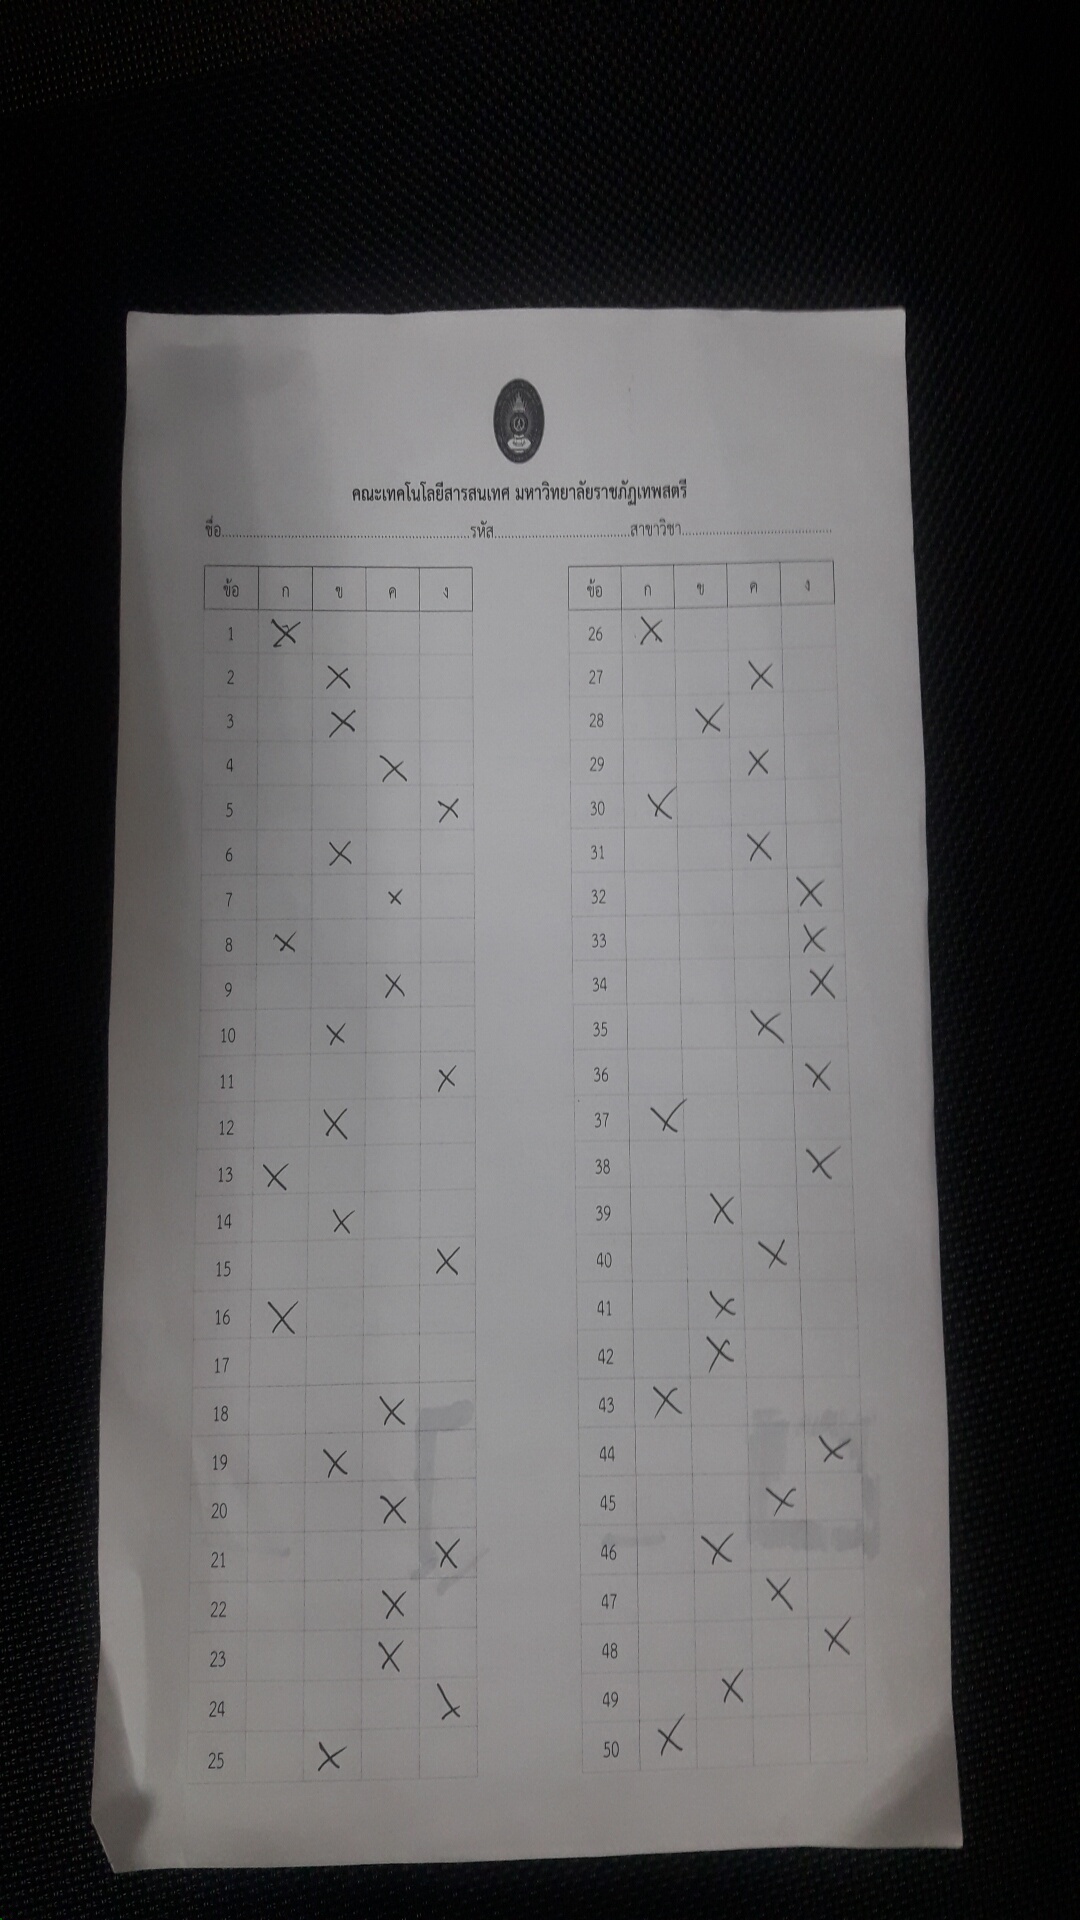 คณะเทคโนโลยีสารสนเทศ มหาวิทยาลัยราชภัฏเทพสตรี
ชื่อ..........รหัส..........สาขาวิชา..........
ข้อ ก ข ค ง
1 X
2 X
3 X
4 X
5 X
6 X
7 X
8 X
9 X
10 X
11 X
12 X
13 X
14 X
15 X
16 X
17
18 X
19 X
20 X
21 X
22 X
23 X
24 X
25 X
ข้อ ก ข ค ง
26 X
27 X
28 X
29 X
30 X
31 X
32 X
33 X
34 X
35 X
36 X
37 X
38 X
39 X
40 X
41 X
42 X
43 X
44 X
45 X
46 X
47 X
48 X
49 X
50 X